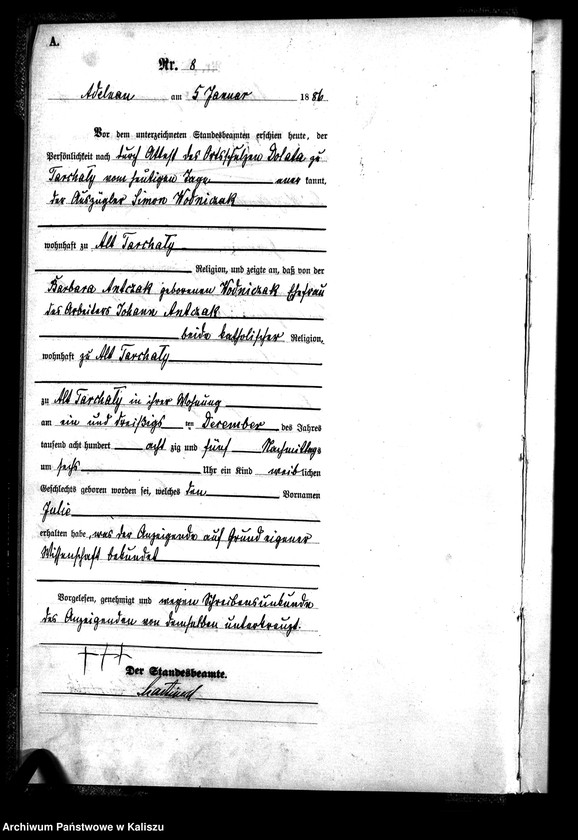 A.
Nr. 8
Adelnau am 5 Januar 1886
Vor dem unterzeichneten Standesbeamten erschien heute, der
Persönlichkeit nach durch Attest des Ortsschulzen Dolata zu
Tarchaly vom heutigen Tage aner kannt,
der Auszügler Simon Wodniczak
wohnhaft zu Alt Tarchaly
Religion, und zeigte an, daß von der
Barbara Antczak geborenen Wodniczak Ehefrau
des Arbeiters Johann Antczak
beide katholischer Religion,
wohnhaft zu Alt Tarchaly
zu Alt Tarchaly in ihrer Wohnung
am ein und dreißigs ten December des Jahres
tausend acht hundert acht zig und fünf Nachmittags
um sechs Uhr ein Kind weib lichen
Geschlechts geboren worden sei, welches den Vornamen
Julie
erhalten habe, was der Anzeigende auf Grund eigener
Wissenschaft bekundet
Vorgelesen, genehmigt und wegen Schreibensunkunde
des Anzeigenden von demselben unterkreuzt.
+++
Der Standesbeamte.
Archiwum Państwowe w Kaliszu